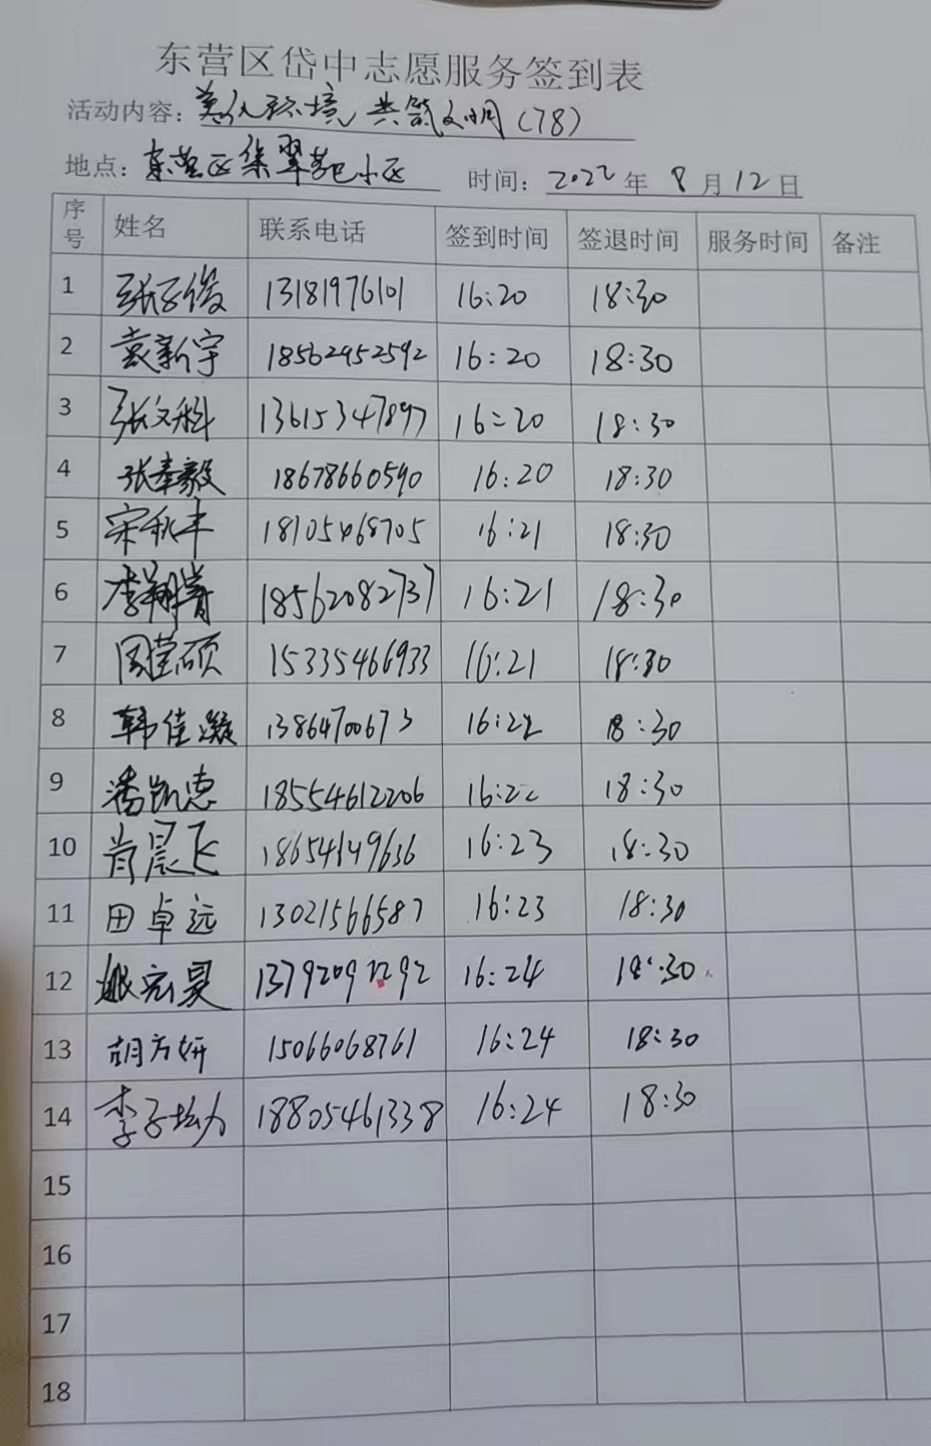 东营区岱中志愿服务签到表
活动内容: 美化环境 共筑文明(78)
地点: 东营区集翠苑小区 时间: 2022年 8月12日
序号 姓名 联系电话 签到时间 签退时间 服务时间 备注
1 张子俊 13181976101 16:20 18:30
2 袁新宇 18562952592 16:20 18:30
3 张文科 13615347897 16:20 18:30
4 张奉毅 18678660590 16:20 18:30
5 宋秋丰 18105468705 16:21 18:30
6 李翔青 18562082737 16:21 18:30
7 周莹硕 15335466933 16:21 18:30
8 韩佳凝 13864700673 16:22 18:30
9 潘凯惠 18554612206 16:22 18:30
10 肖晨飞 18654649636 16:23 18:30
11 田卓远 13021566587 16:23 18:30
12 姚宏昊 16:24 18:30
13 胡方妍 15066068761 16:24 18:30
14 李子 18805461338 16:24 18:30
15
16
17
18